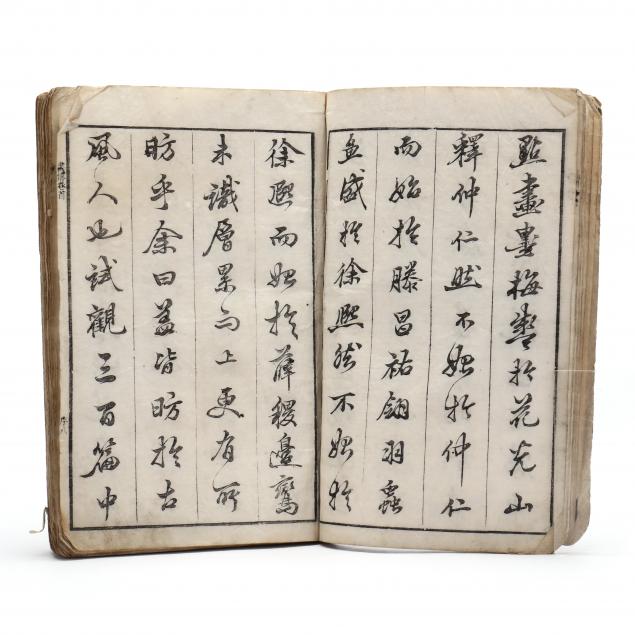 點畫畫梅盛於花光山
釋仲仁然不始於仲仁
而始於滕昌祐翎羽蟲
盛於徐熙然不始於
徐熙而始於薛稷邊鸞
未識層累而上更有所
昉乎余曰蓋皆昉於古
風人也試觀三百篇中